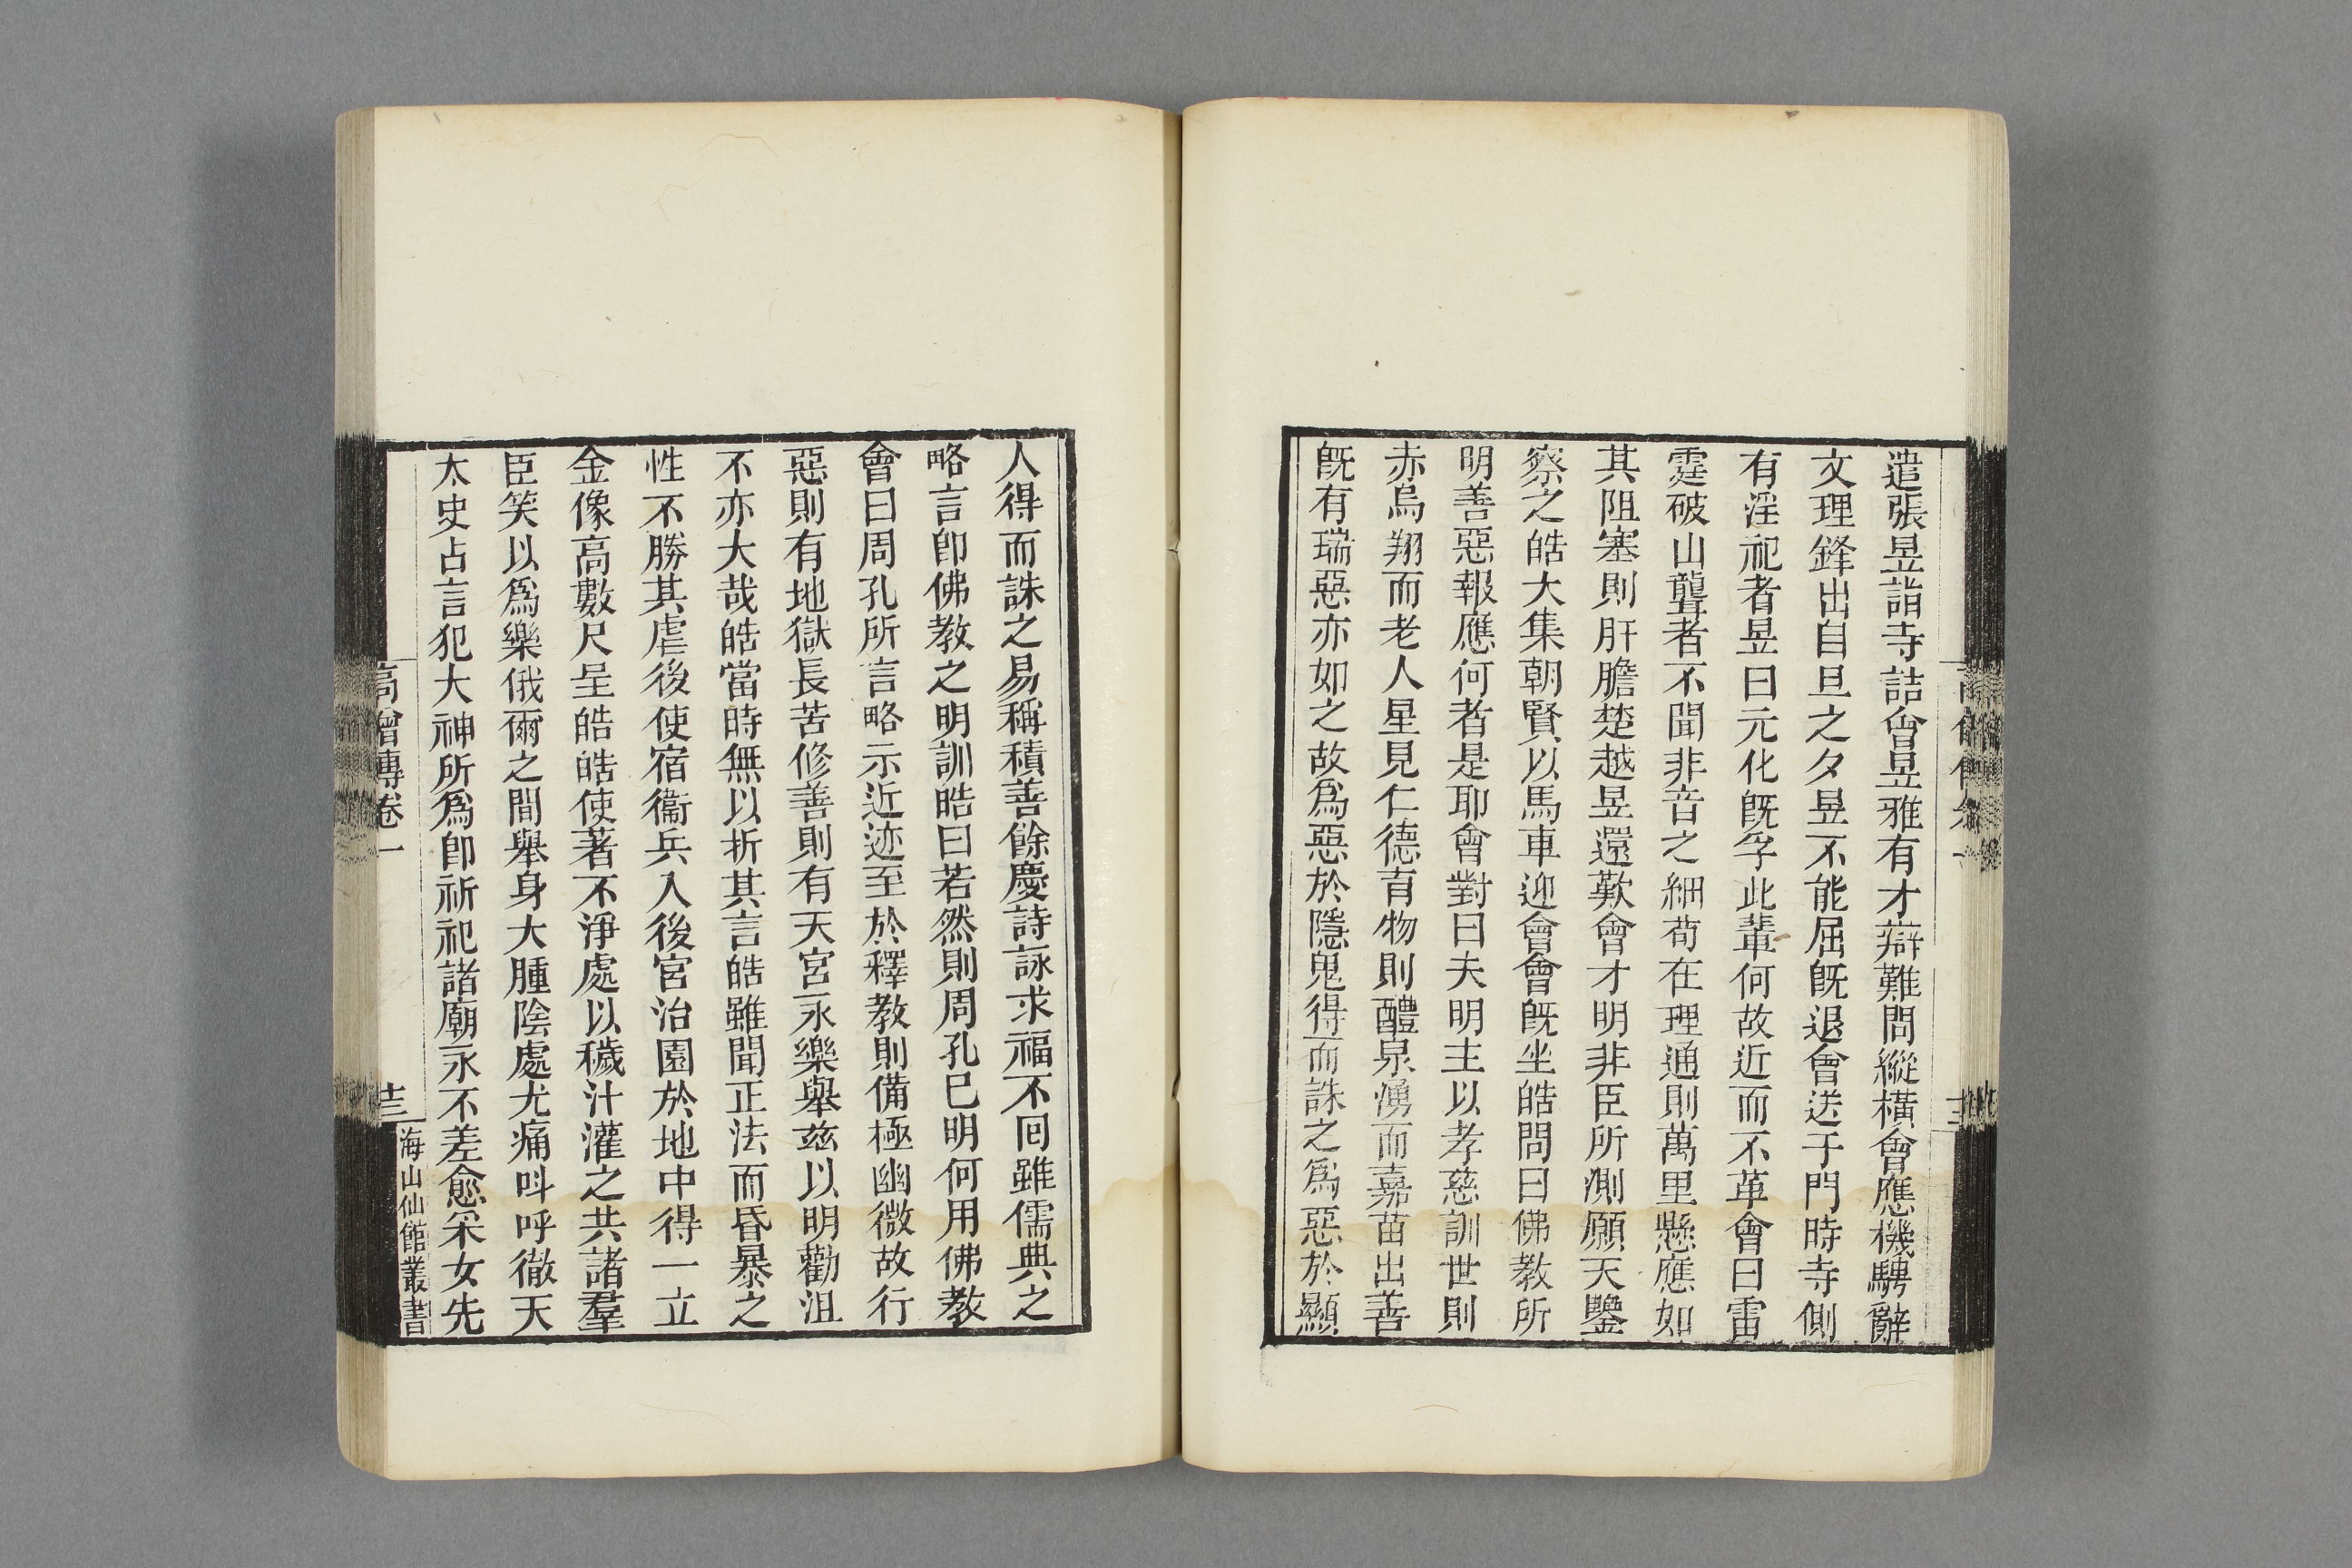 遣張昱詣寺詰會昱雅有才辯難問縱橫會應機騁辭
文理鋒出自旦之夕昱不能屈旣退會送于門時寺側
有淫祀者昱曰元化旣孚此輩何故近而不革會曰雷
霆破山聾者不聞非音之細茍在理通則萬里懸應如
其阻塞則肝膽楚越昱還歎會才明非臣所測願天鑒
察之皓大集朝賢以馬車迎會會旣坐皓問曰佛教所
明善惡報應何者是耶會對曰夫明主以孝慈訓世則
赤烏翔而老人星見仁德育物則醴泉湧而嘉苗出善
旣有瑞惡亦如之故爲惡於隱鬼得而誅之爲惡於顯
人得而誅之易稱積善餘慶詩詠求福不囘雖儒典之
略言卽佛教之明訓皓曰若然則周孔巳明何用佛教
會曰周孔所言略示近迹至於釋教則備極幽微故行
惡則有地獄長苦修善則有天宮永樂舉茲以明勸沮
不亦大哉皓當時無以折其言皓雖聞正法而昏暴之
性不勝其虐後使宿衞兵入後宮治園於地中得一立
金像高數尺呈皓皓使著不淨處以穢汁灌之共諸羣
臣笑以爲樂俄爾之間舉身大腫陰處尤痛呌呼徹天
太史占言犯大神所爲卽祈祀諸廟永不差愈采女先
高僧傳卷一
十三
海山仙館叢書